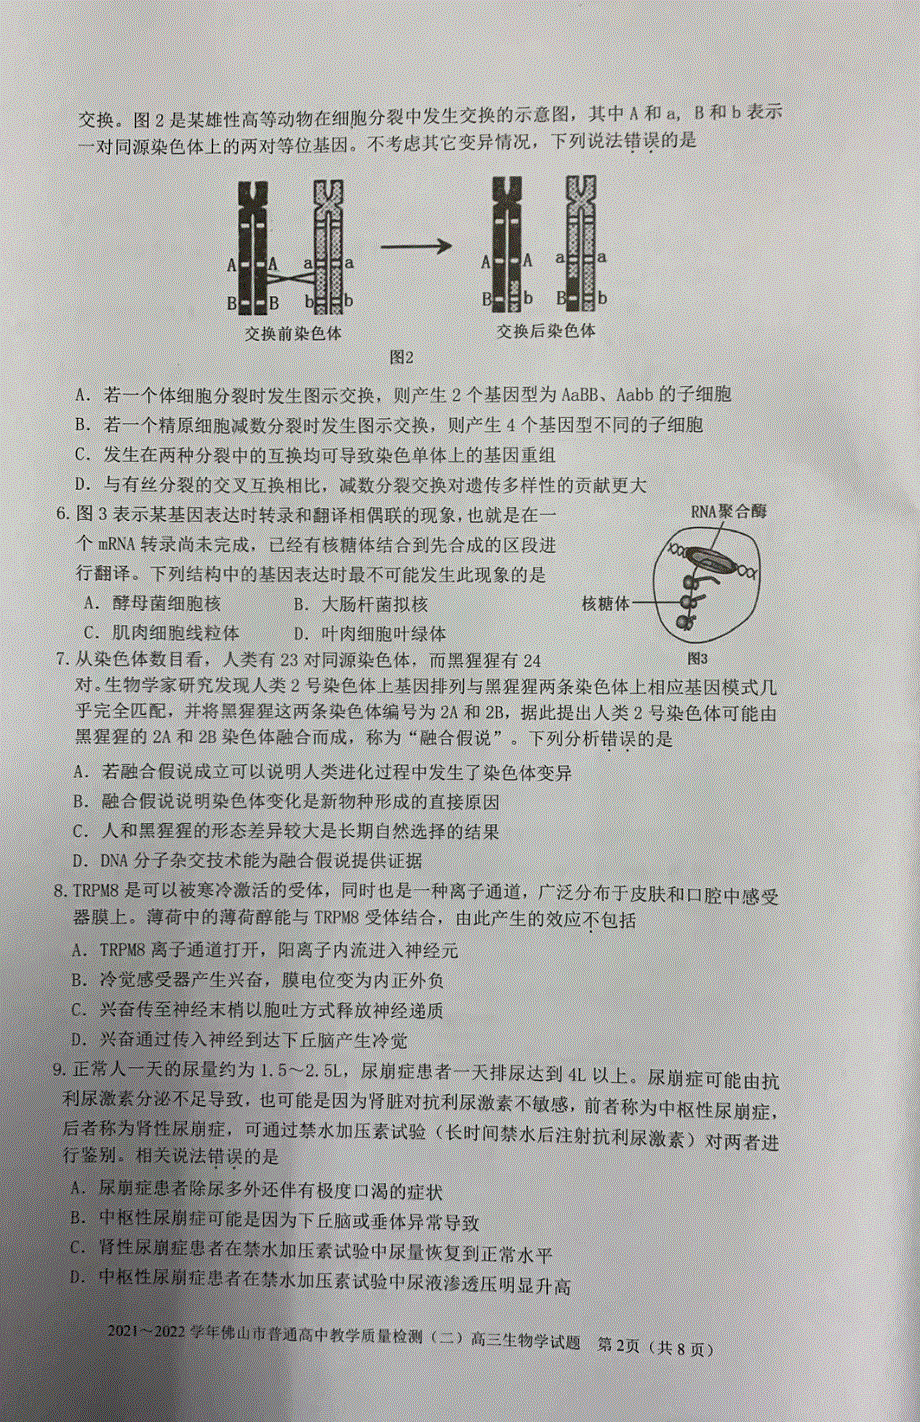 交换。图2是某雄性高等动物在细胞分裂中发生交换的示意图，其中A和a, B和b表示
一对同源染色体上的两对等位基因。不考虑其它变异情况，下列说法错误的是
A A a a
B B b b
交换前染色体
A A a a
B b B b
交换后染色体
图2
A. 若一个体细胞分裂时发生图示交换，则产生2个基因型为AaBB、Aabb的子细胞
B. 若一个精原细胞减数分裂时发生图示交换，则产生4个基因型不同的子细胞
C. 发生在两种分裂中的互换均可导致染色单体上的基因重组
D. 与有丝分裂的交叉互换相比，减数分裂交换对遗传多样性的贡献更大
6. 图3表示某基因表达时转录和翻译相偶联的现象，也就是在一
个mRNA转录尚未完成，已经有核糖体结合到先合成的区段进
行翻译。下列结构中的基因表达时最不可能发生此现象的是
A. 酵母菌细胞核 B. 大肠杆菌拟核
C. 肌肉细胞线粒体 D. 叶肉细胞叶绿体
RNA聚合酶
核糖体
图3
7. 从染色体数目看，人类有23对同源染色体，而黑猩猩有24
对。生物学家研究发现人类2号染色体上基因排列与黑猩猩两条染色体上相应基因模式几
乎完全匹配，并将黑猩猩这两条染色体编号为2A和2B，据此提出人类2号染色体可能由
黑猩猩的2A和2B染色体融合而成，称为“融合假说”。下列分析错误的是
A. 若融合假说成立可以说明人类进化过程中发生了染色体变异
B. 融合假说说明染色体变化是新物种形成的直接原因
C. 人和黑猩猩的形态差异较大是长期自然选择的结果
D. DNA分子杂交技术能为融合假说提供证据
8. TRPM8是可以被寒冷激活的受体，同时也是一种离子通道，广泛分布于皮肤和口腔中感受
器膜上。薄荷中的薄荷醇能与TRPM8受体结合，由此产生的效应不包括
A. TRPM8离子通道打开，阳离子内流进入神经元
B. 冷觉感受器产生兴奋，膜电位变为内正外负
C. 兴奋传至神经末梢以胞吐方式释放神经递质
D. 兴奋通过传入神经到达下丘脑产生冷觉
9. 正常人一天的尿量约为1.5～2.5L，尿崩症患者一天排尿达到4L以上。尿崩症可能由抗
利尿激素分泌不足导致，也可能是因为肾脏对抗利尿激素不敏感，前者称为中枢性尿崩症，
后者称为肾性尿崩症，可通过禁水加压素试验（长时间禁水后注射抗利尿激素）对两者进
行鉴别。相关说法错误的是
A. 尿崩症患者除尿多外还伴有极度口渴的症状
B. 中枢性尿崩症可能是因为下丘脑或垂体异常导致
C. 肾性尿崩症患者在禁水加压素试验中尿量恢复到正常水平
D. 中枢性尿崩症患者在禁水加压素试验中尿液渗透压明显升高
2021～2022学年佛山市普通高中教学质量检测（二）高三生物学试题 第2页（共8页）